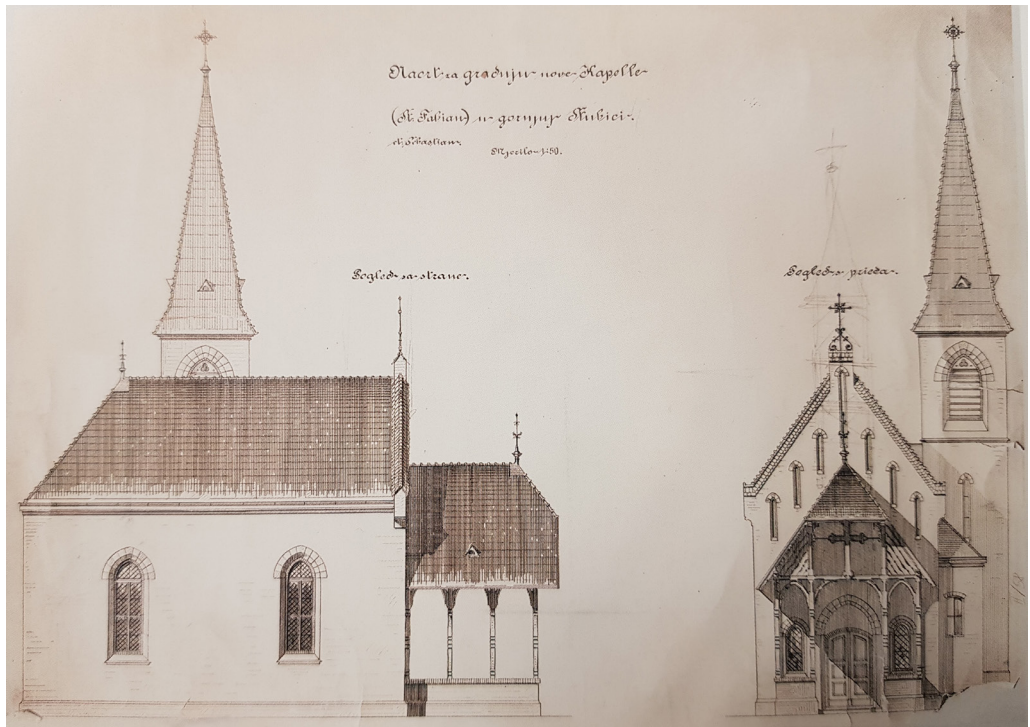 Nacrt za gradnju nove Kapelle
(St. Fabian) u gornjuj Stubici.
et Sebastian.
Mjerilo 1:50.
Pogled sa strane.
Pogled s prieda.